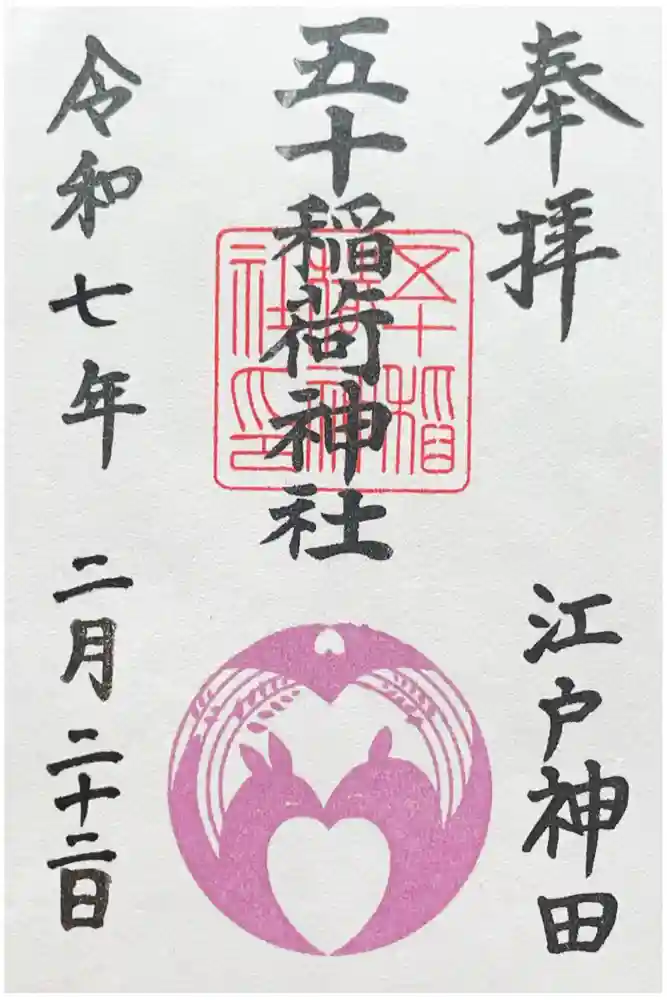 奉拝
江戸神田
五十稲荷神社
五十稲
荷神
社印
令和七年 二月 二十二日